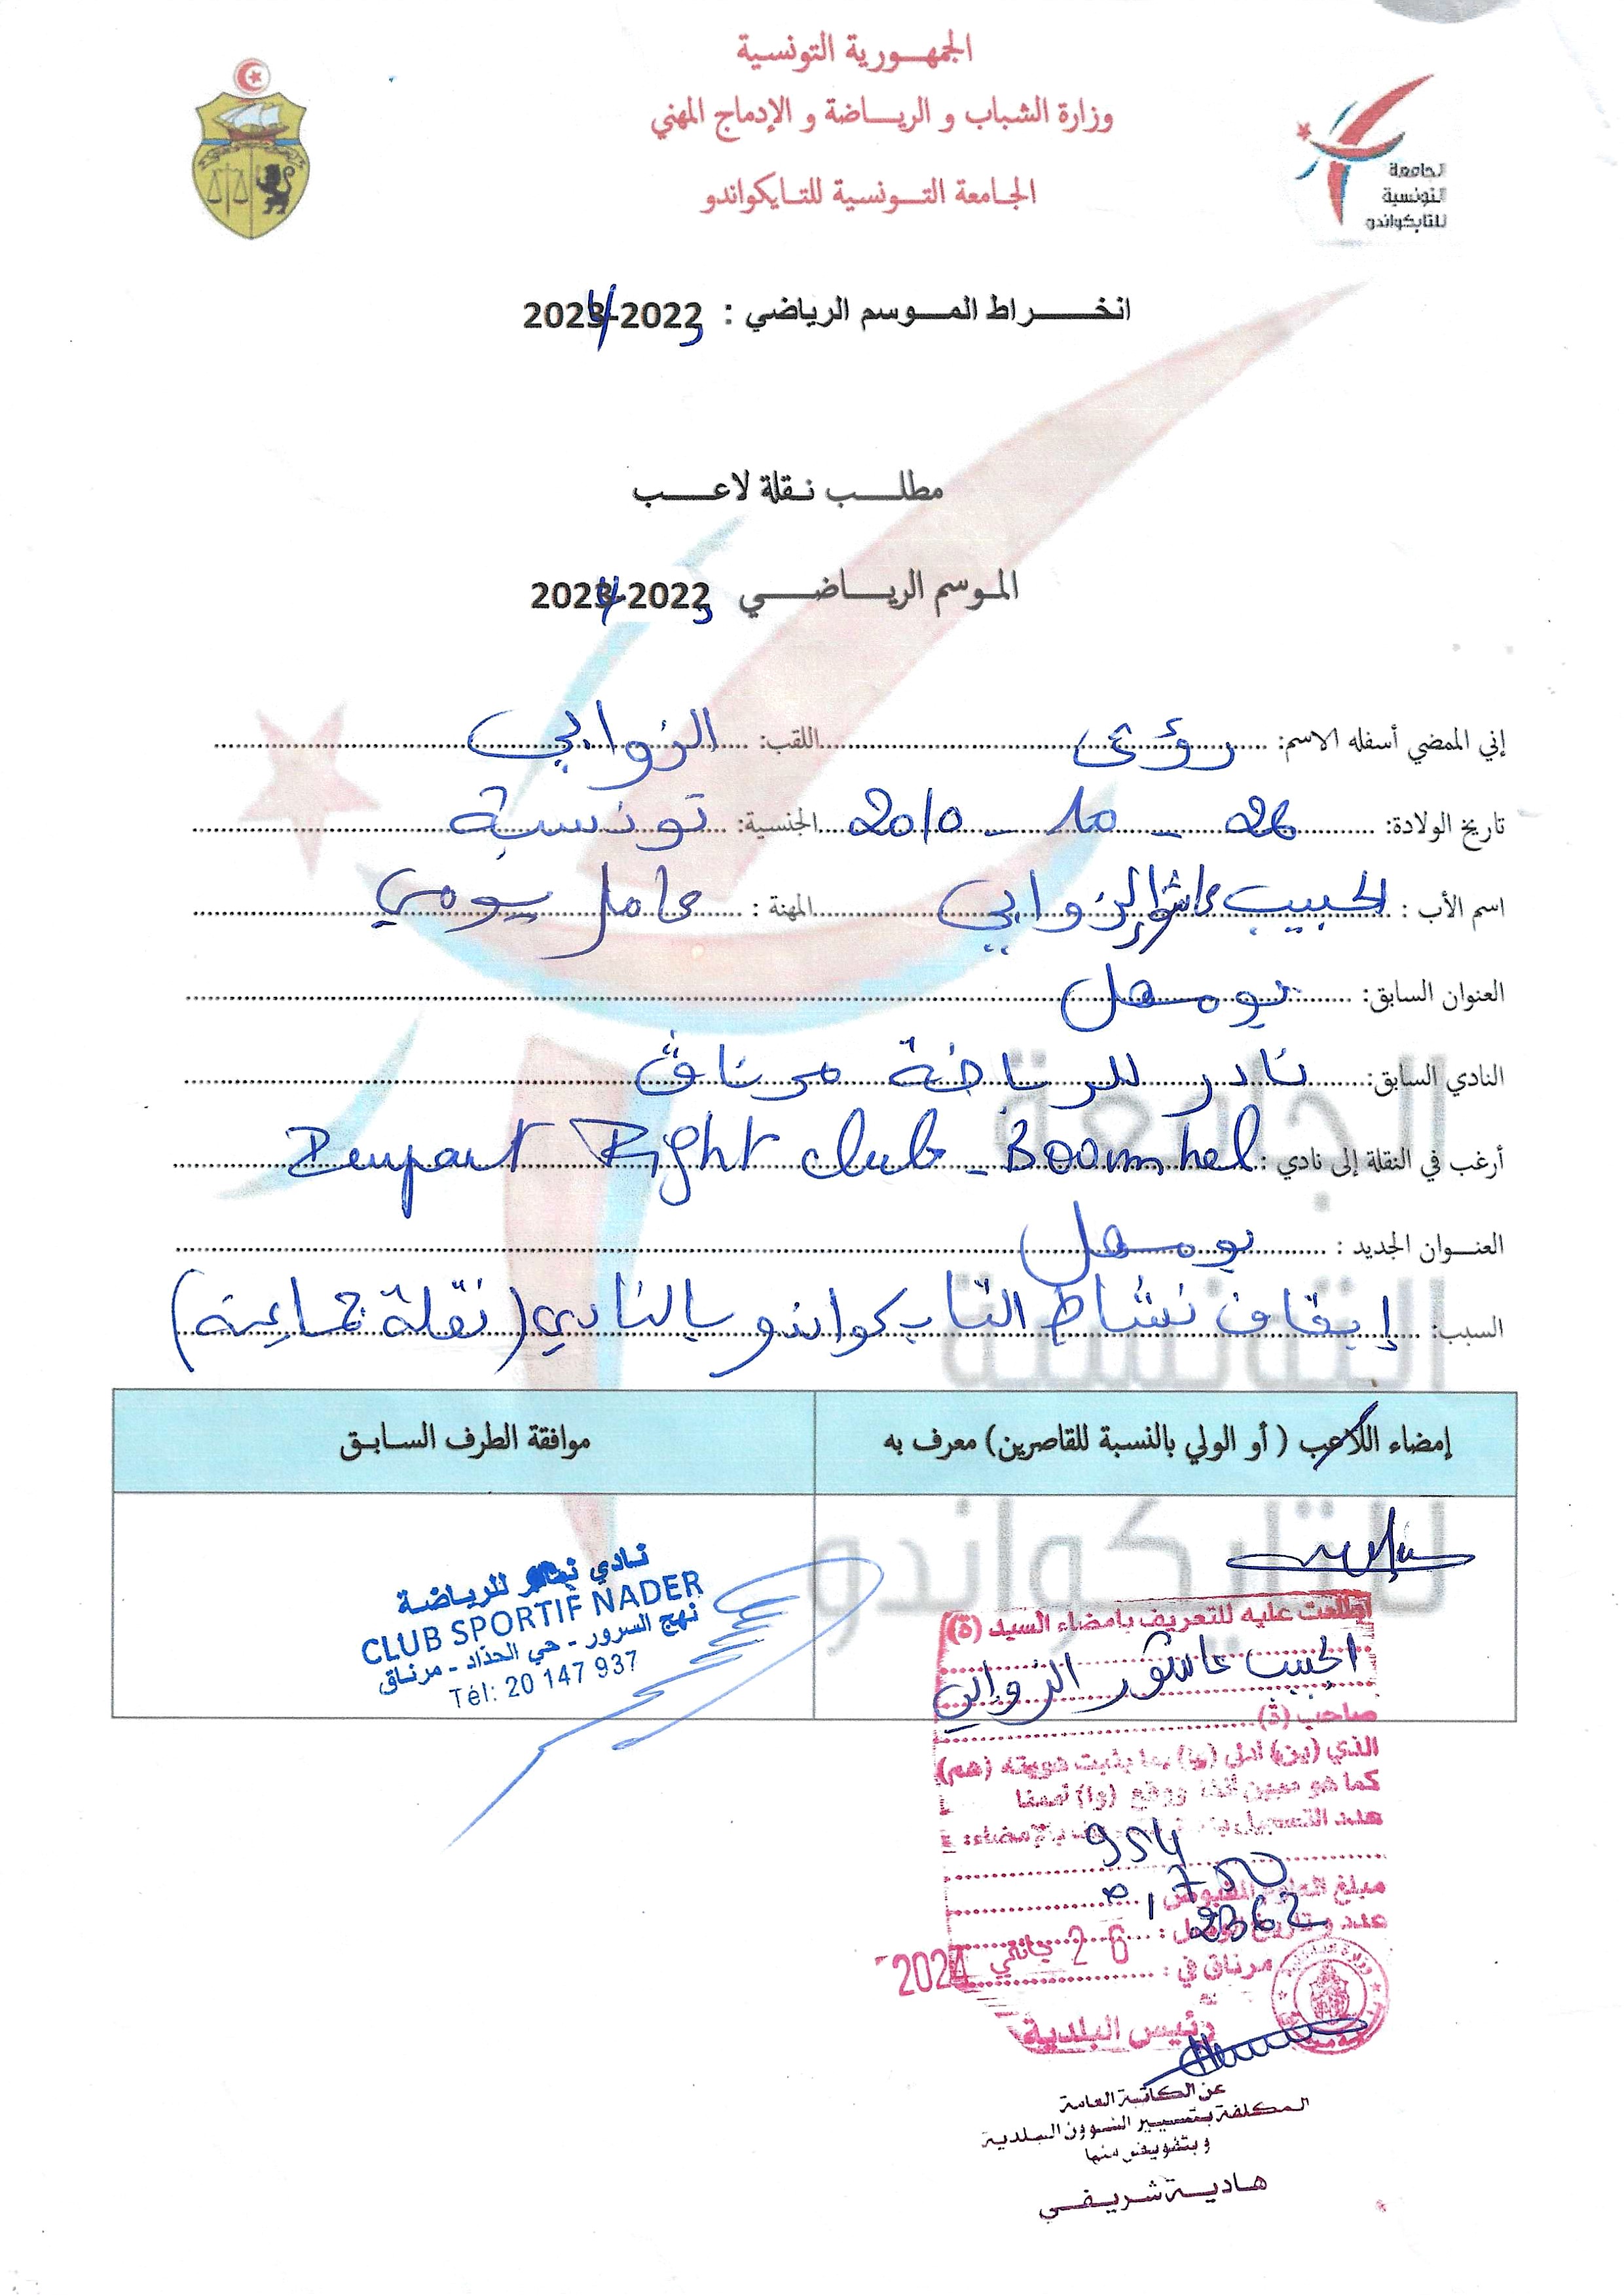 الجمهورية التونسية
وزارة الشباب و الرياضة و الإدماج المهني
الجامعة التونسية للتايكواندو
الجامعة
التونسية
للتايكواندو
انخراط الموسم الرياضي : 2022-2023
مطلب نقلة لاعب
الموسم الرياضي 2022-2023
إني الممضي أسفله الاسم: رؤى اللقب: الزوابي
تاريخ الولادة: 26 - 10 - 2010 الجنسية: تونسية
اسم الأب : الحبيب عاشور الزوابي المهنة : عامل يومي
العنوان السابق: بومهل
النادي السابق: نادر للرياضة مرناق
أرغب في النقلة إلى نادي : Fight club - Boomhel
العنوان الجديد : بومهل
السبب: إيقاف نشاط التايكواندو بالنادي (نقلة جماعية)
إمضاء اللاعب ( أو الولي بالنسبة للقاصرين) معرف به
موافقة الطرف السابق
نادي للرياضة
CLUB SPORTIF NADER
نهج السرور - حي الحداد - مرناق
Tél: 20 147 937
اطلعت عليه للتعريف بامضاء السيد (ة)
الحبيب عاشور الزوابي
صاحب (ة)
الذي (ين) أدلى (وا) بما يثبت هويته (هم)
كما هو مبين أعلاه ووقع (وا) أمامنا
عدد التسجيل بالإمضاء:
954
مبلغ المعلوم المقبوض : 0,750
عدد و تاريخ الوصل : 2362
مرناق في : 26 جانفي 2024
رئيس البلدية
عن الكاتبة العامة
المكلفة بتسيير الشؤون البلدية
و بتفويض منها
هادية شريفي
الجامعة
التونسية
للتايكواندو